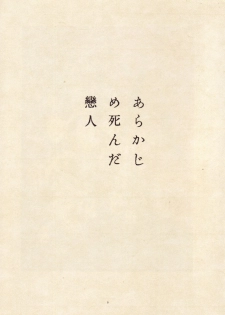 あらかじ
め死んだ
戀人